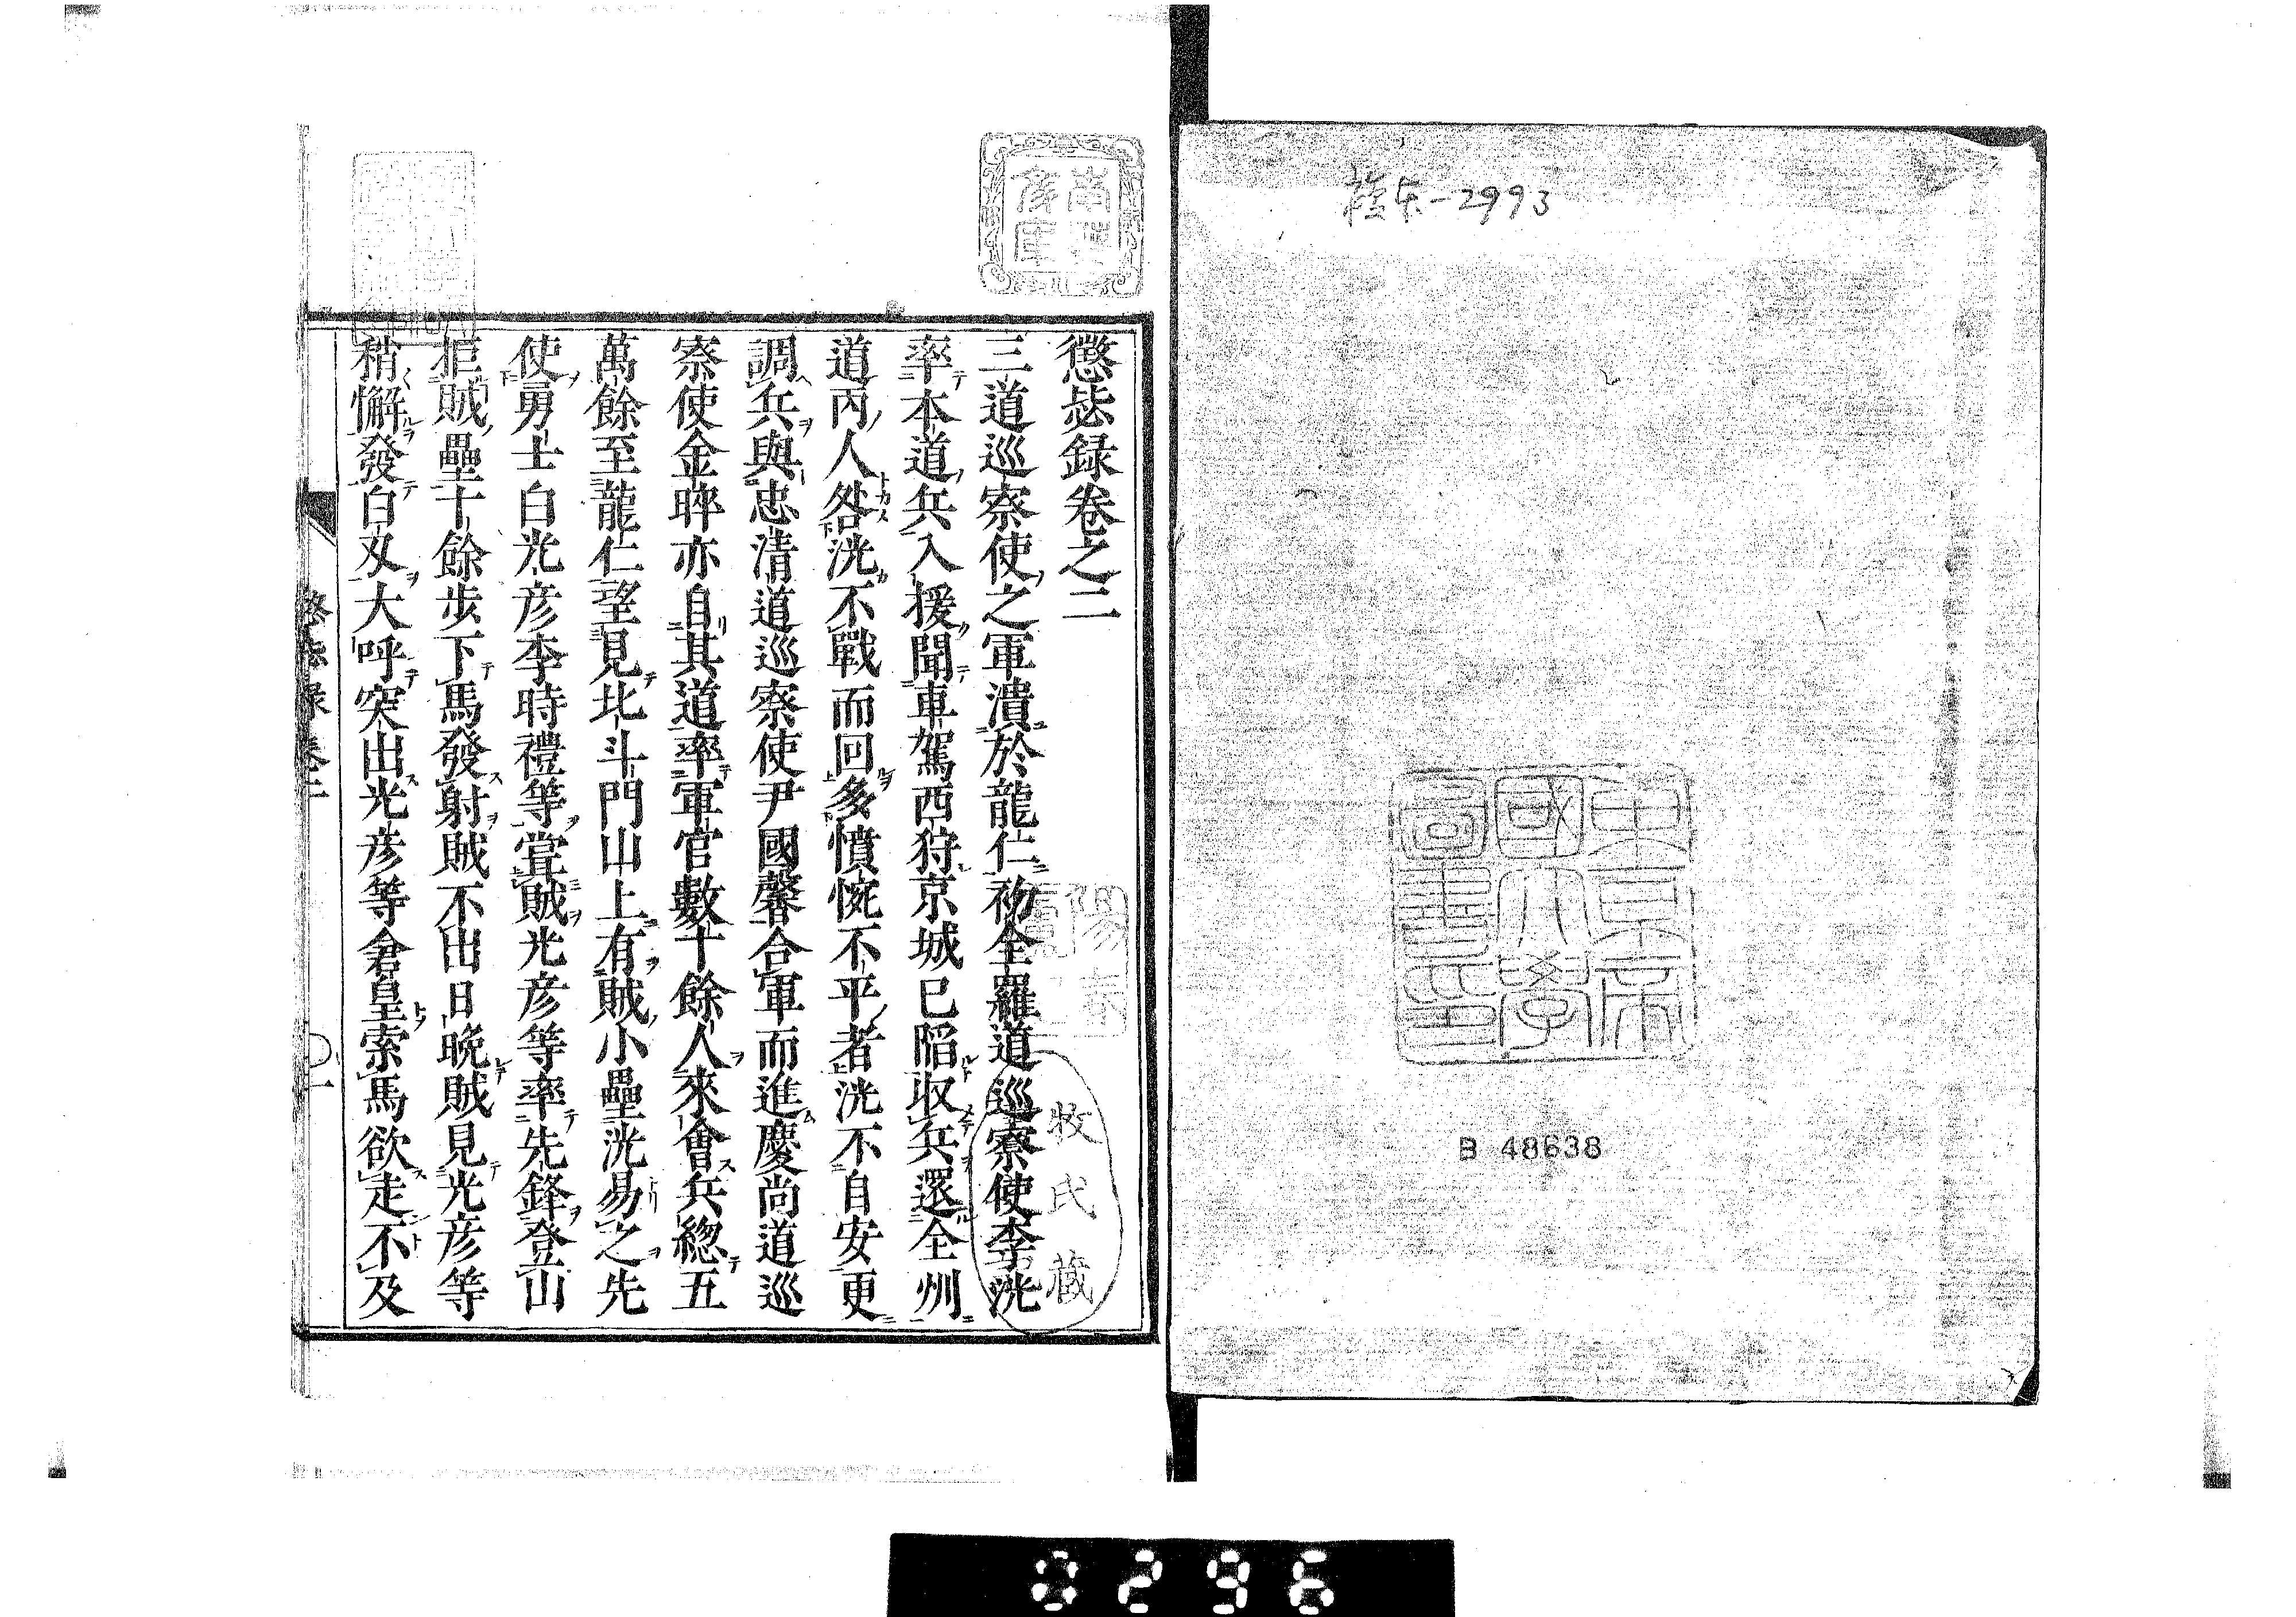 2993
東京帝
國大學
圖書印
B 48638
懲毖録卷之二
三道巡察使之軍潰於龍仁初全羅道巡察使李洸
率本道兵入援聞車駕西狩京城已陷收兵還全州
道丙人咎洸不戰而回多憤惋不平者洸不自安更
調兵與忠清道巡察使尹國馨合軍而進慶尚道巡
察使金睟亦自其道率軍官數十餘人來會兵總五
萬餘至龍仁望見北斗門山上有賊小壘洸易之先
使勇士白光彦李時禮等嘗賊光彦等率先鋒登山
拒賊壘十餘步下馬發射賊不出日晩賊見光彦等
稍懈發白刄大呼突出光彦等倉皇索馬欲走不及
牧氏蔵
懲毖录 卷二
一
0296